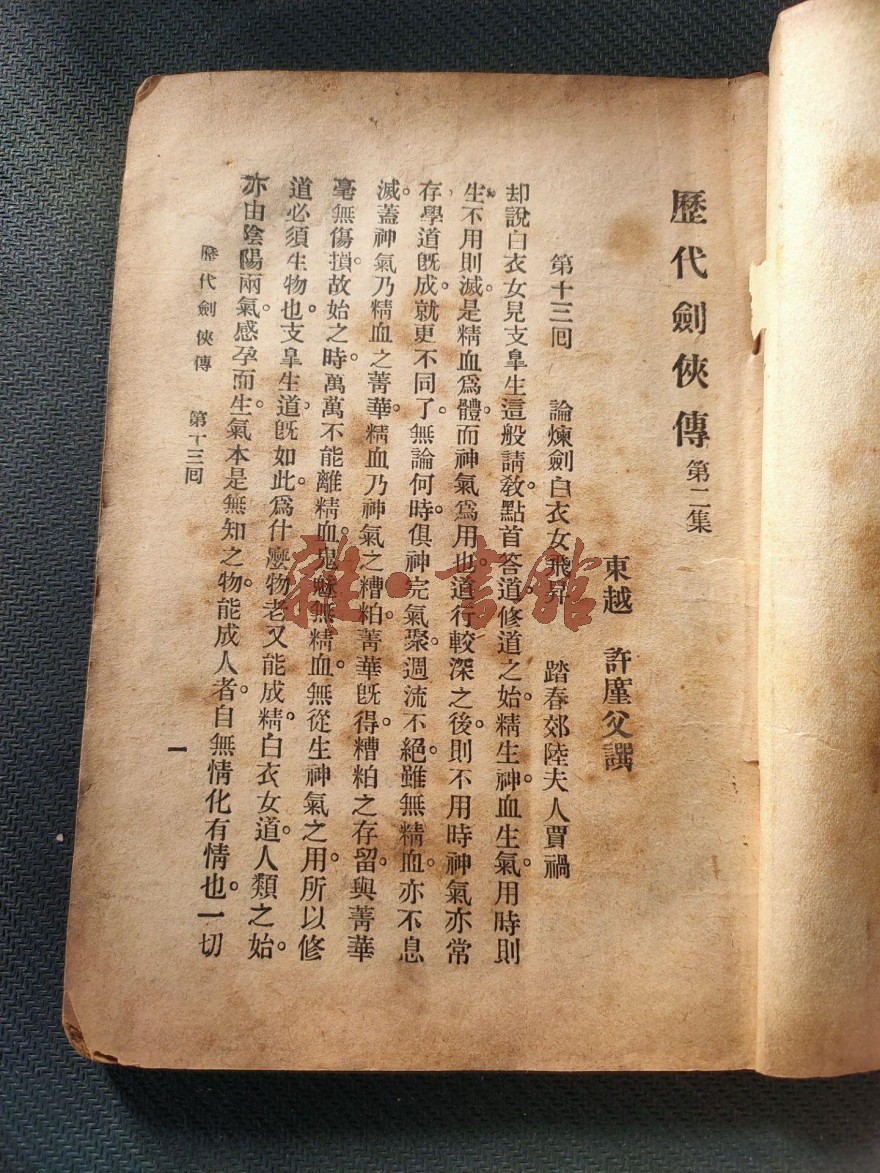 歷代劍俠傳 第二集
東越 許廑父譔
第十三囘 論煉劍白衣女飛昇 踏春郊陸夫人賈禍
却說白衣女見支臯生這般請敎點首答道。修道之始。精生神。血生氣。用時則
生。不用則滅。是精血爲體。而神氣爲用也。道行較深之後。則不用時神氣亦常
存。學道旣成。就更不同了。無論何時。俱神完氣聚。週流不絕。雖無精血。亦不息
滅。蓋神氣乃精血之菁華。精血乃神氣之糟粕。菁華旣得。糟粕之存留。與菁華
毫無傷損。故始之時。萬萬不能離精血。鬼魅無精血。無從生神氣之用。所以修
道必須生物也。支臯生道。旣如此。爲什麼物老又能成精。白衣女道。人類之始。
亦由陰陽兩氣。感孕而生。氣本是無知之物。能成人者。自無情化有情也。一切
歷代劍俠傳 第十三囘 一
雜·書館